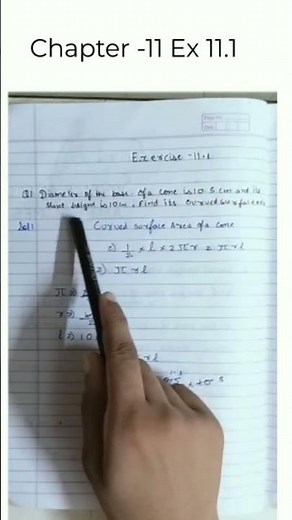 Chapter -11 Ex 11.1
Exercise -11.1
Q1 Diameter of the base of a cone is 10.5 cm and its
slant height is 10cm. Find its curved surface area
Sol: Curved surface Area of a cone
⇒ 1/2 × l × 2πr = πrl
⇒ πrl
π ⇒
r ⇒
l ⇒ 10